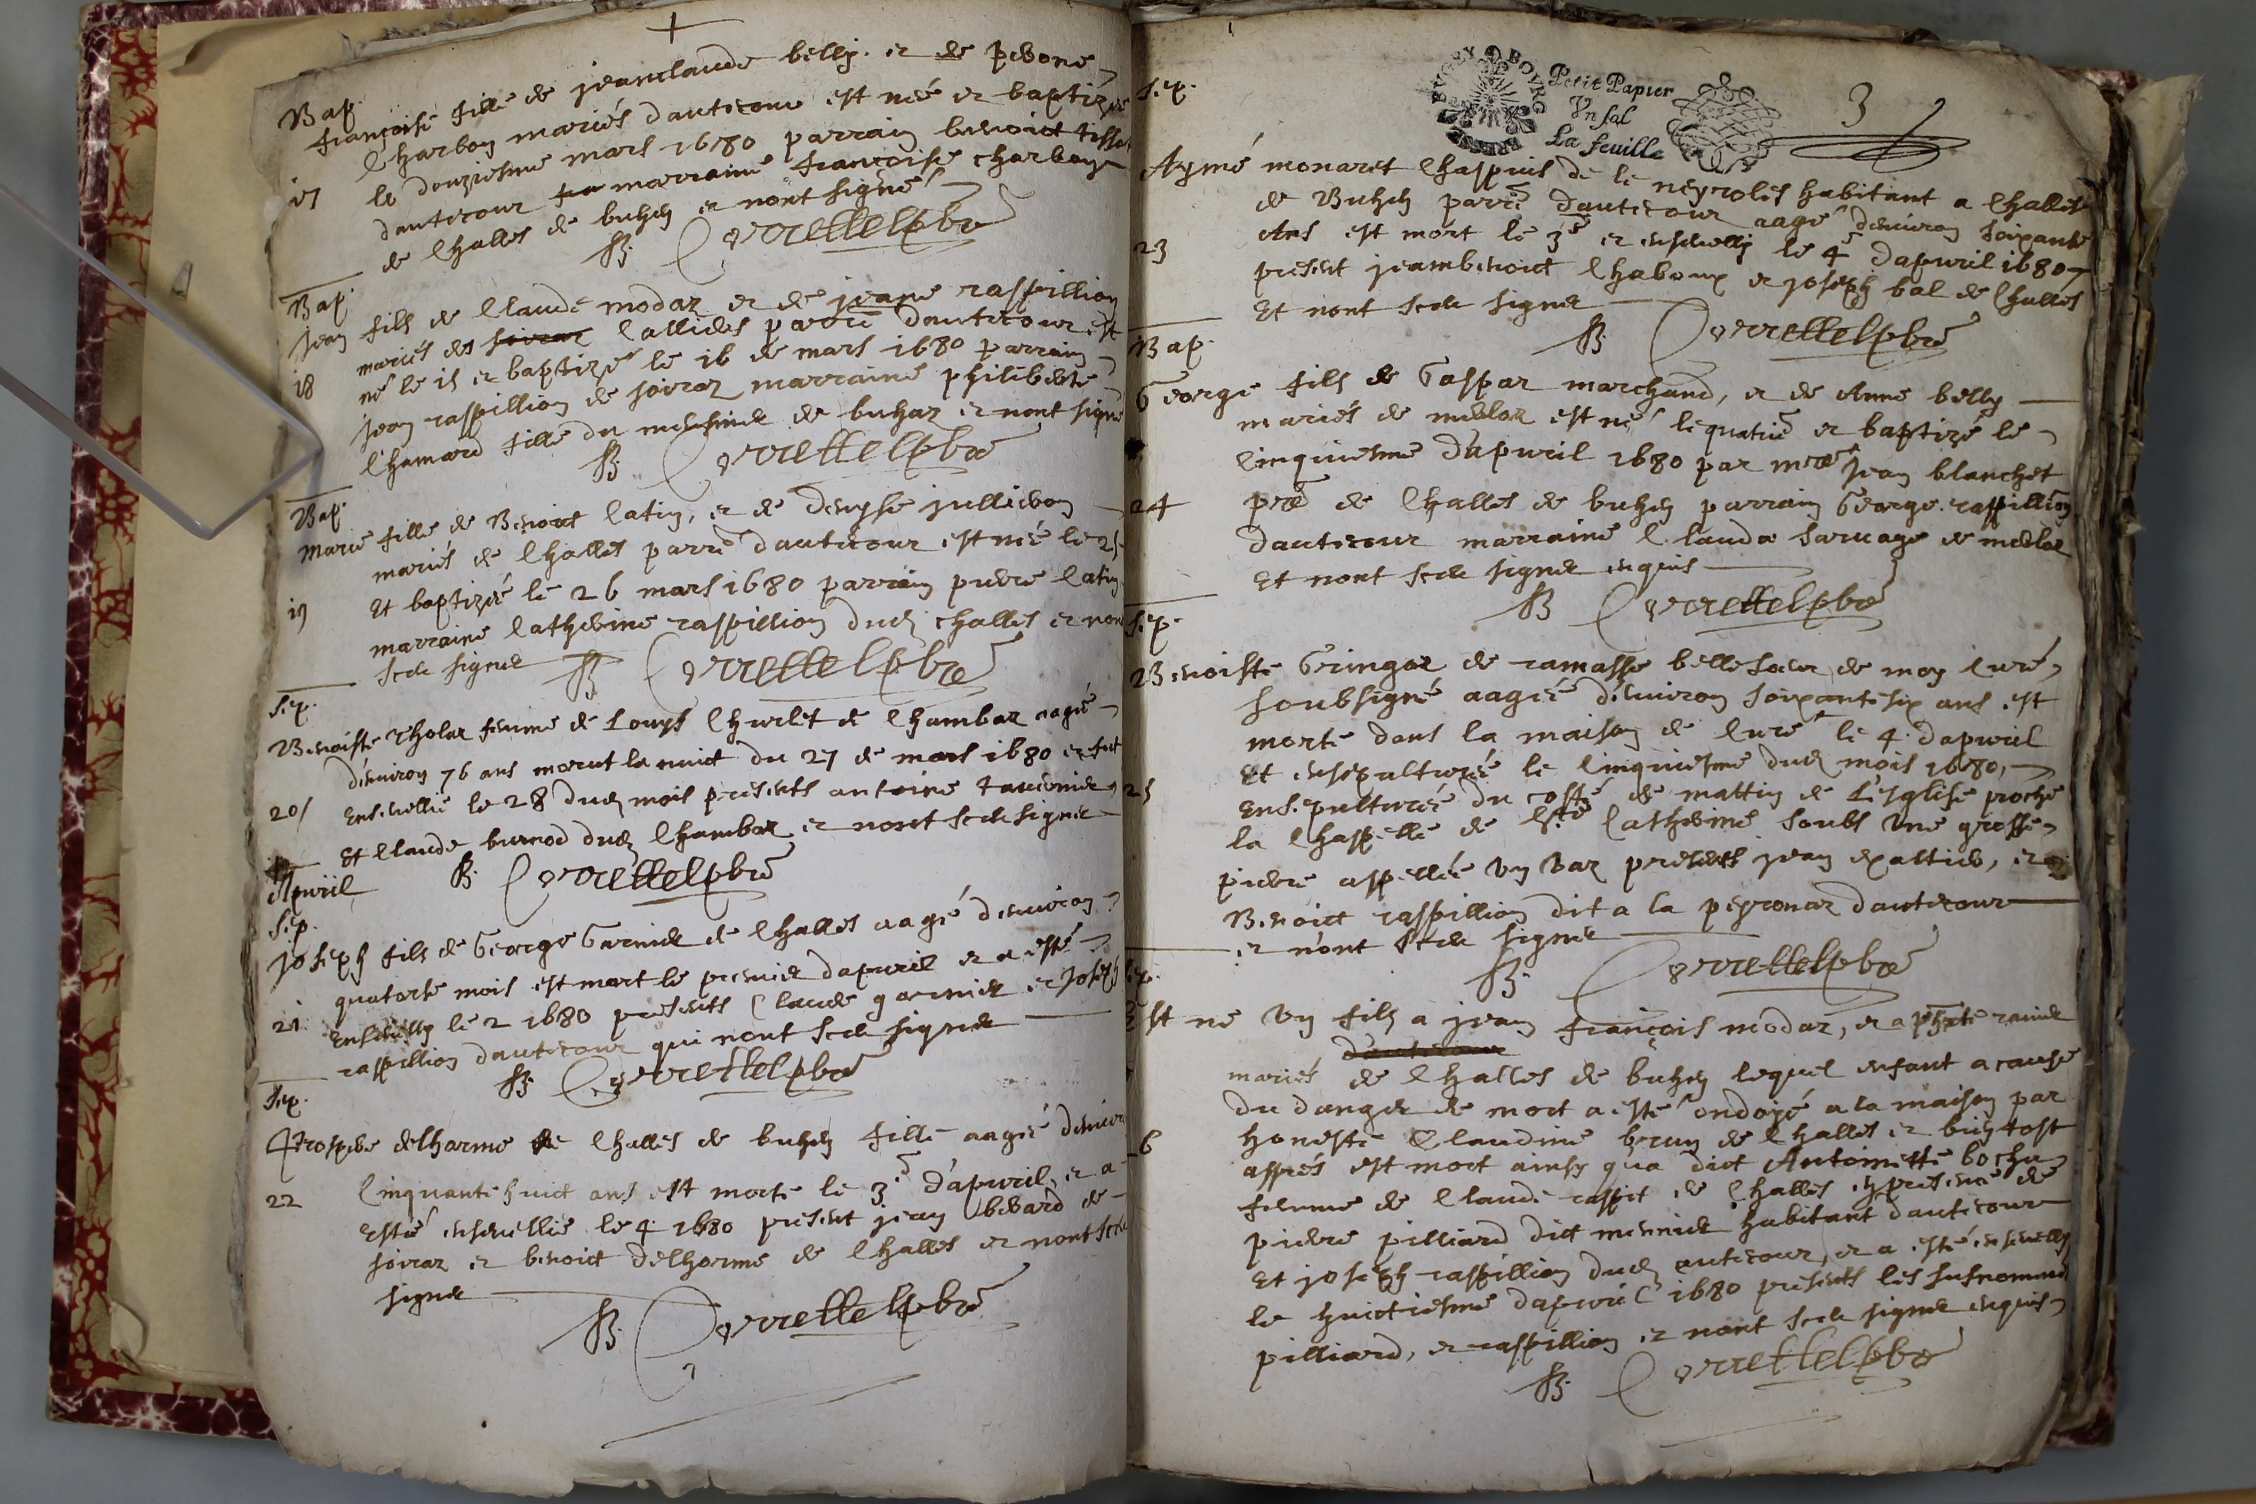 Bap.
françoise fille de jeanclaude belly. et de
Charbon mariés dautecour est née et baptizée
17 le douziesme mars 1680 parrain benoict
dautecour marraine françoise charbon
de Challes de buhen et nont signé
B. Corretel pbre
Bap.
jean fils de Claude modaz et de jeane raspillion
mariés de Callides parre dautecour est
18 né le 15 et baptizé le 16 de mars 1680 parrain
jean raspillion de soiraz marraine philiberte
Chamard fille du meusnier de buhaz et nont signé
B. Corretel pbre
Bap.
marie fille de Benoict Catin, et de denyse jullieron
mariés de Challes parre dautecour est née le 25
19 Et baptizée le 26 mars 1680 parrain pierre Catin
marraine Catherine raspillion dud challes et nont
sceu signer B. Corretel pbre
Sep.
Benoiste Tholar femme de Louys Churlet de Chambar aagée
denviron 76 ans morut la nuict du 27 de mars 1680 et fut
20 Ensevellie le 28 dud mois presents antoine
Et Claude burnod dud Chambar et nont sceu signer
B. Corretel pbre
Apuril
Sep.
joseph fils de George Garnier de Challes aagé denviron
quatorse mois est mort le premier dapuril et a esté
21 Ensevelly le 2 1680 presents Claude garnier et joseph
raspillion dautecour qui nont sceu signer
B. Corretel pbre
Sep.
Prospere delharme de Challes de buhen fille aagée
22 Cinquante huict ans est morte le 3e dapuril, et a
Esté ensevellie le 4 1680 present jean de
soiraz et benoict delhorme de Challes et nont sceu
signer
B. Corretel pbre
Sep.
BUGEY BOURG BRESSE
Petit Papier
Vn sol
La feuille
3
Aymé monaret Chapuis de le neyroles habitant a Challes
de Buhen parre dautecour aagé denviron soixante
23 Ans est mort le 3e et ensevelly le 4e dapuril 1680
present jeambenoict Chaboux et joseph bal de Challes
Et nont sceu signer
B. Corretel pbre
Bap.
George fils de Gaspar marchand, et de Anne belly
mariés de est né le quatrie et baptizé le
Cinquiesme dapuril 1680 par mre jean blanchet
24 pre de Challes de buhen parrain George raspillion
dautecour marraine Clauda saruage de
Et nont sceu signer enquis
B. Corretel pbre
Sep.
Benoiste Gringoz de ramasse belle soeur de moy Curé
soubsigné aagée denviron soixante six ans est
morte dans la maison de Cure le 4 dapuril
Et ensepulturée le Cinquiesme dud mois 1680,
25 Ensepulturée du costé de mattin de Lesglise proche
la Chappelle de Ste Catherine soubs une grosse
pierre appellée un Var presents jean et
Benoict raspillion dit a la peyronaz dautecour
et nont sceu signer
B. Corretel pbre
Sep.
Est né un fils a jean françois modaz, et a
dautecour
mariés de Challes de buhen lequel enfant a cause
du danger de mort a esté ondoyé a la maison par
26 honeste Claudine brun de Challes et bien tost
appres est mort ainsy qua dict Antoinette bochu
femme de Claude de Challes en presence de
pierre pilliard dict habitant dautecour
Et joseph raspillion dud autecour, et a esté ensevelly
le huictiesme dapuril 1680 presents les susnommés
pilliard, et raspillion et nont sceu signer enquis
B. Corretel pbre